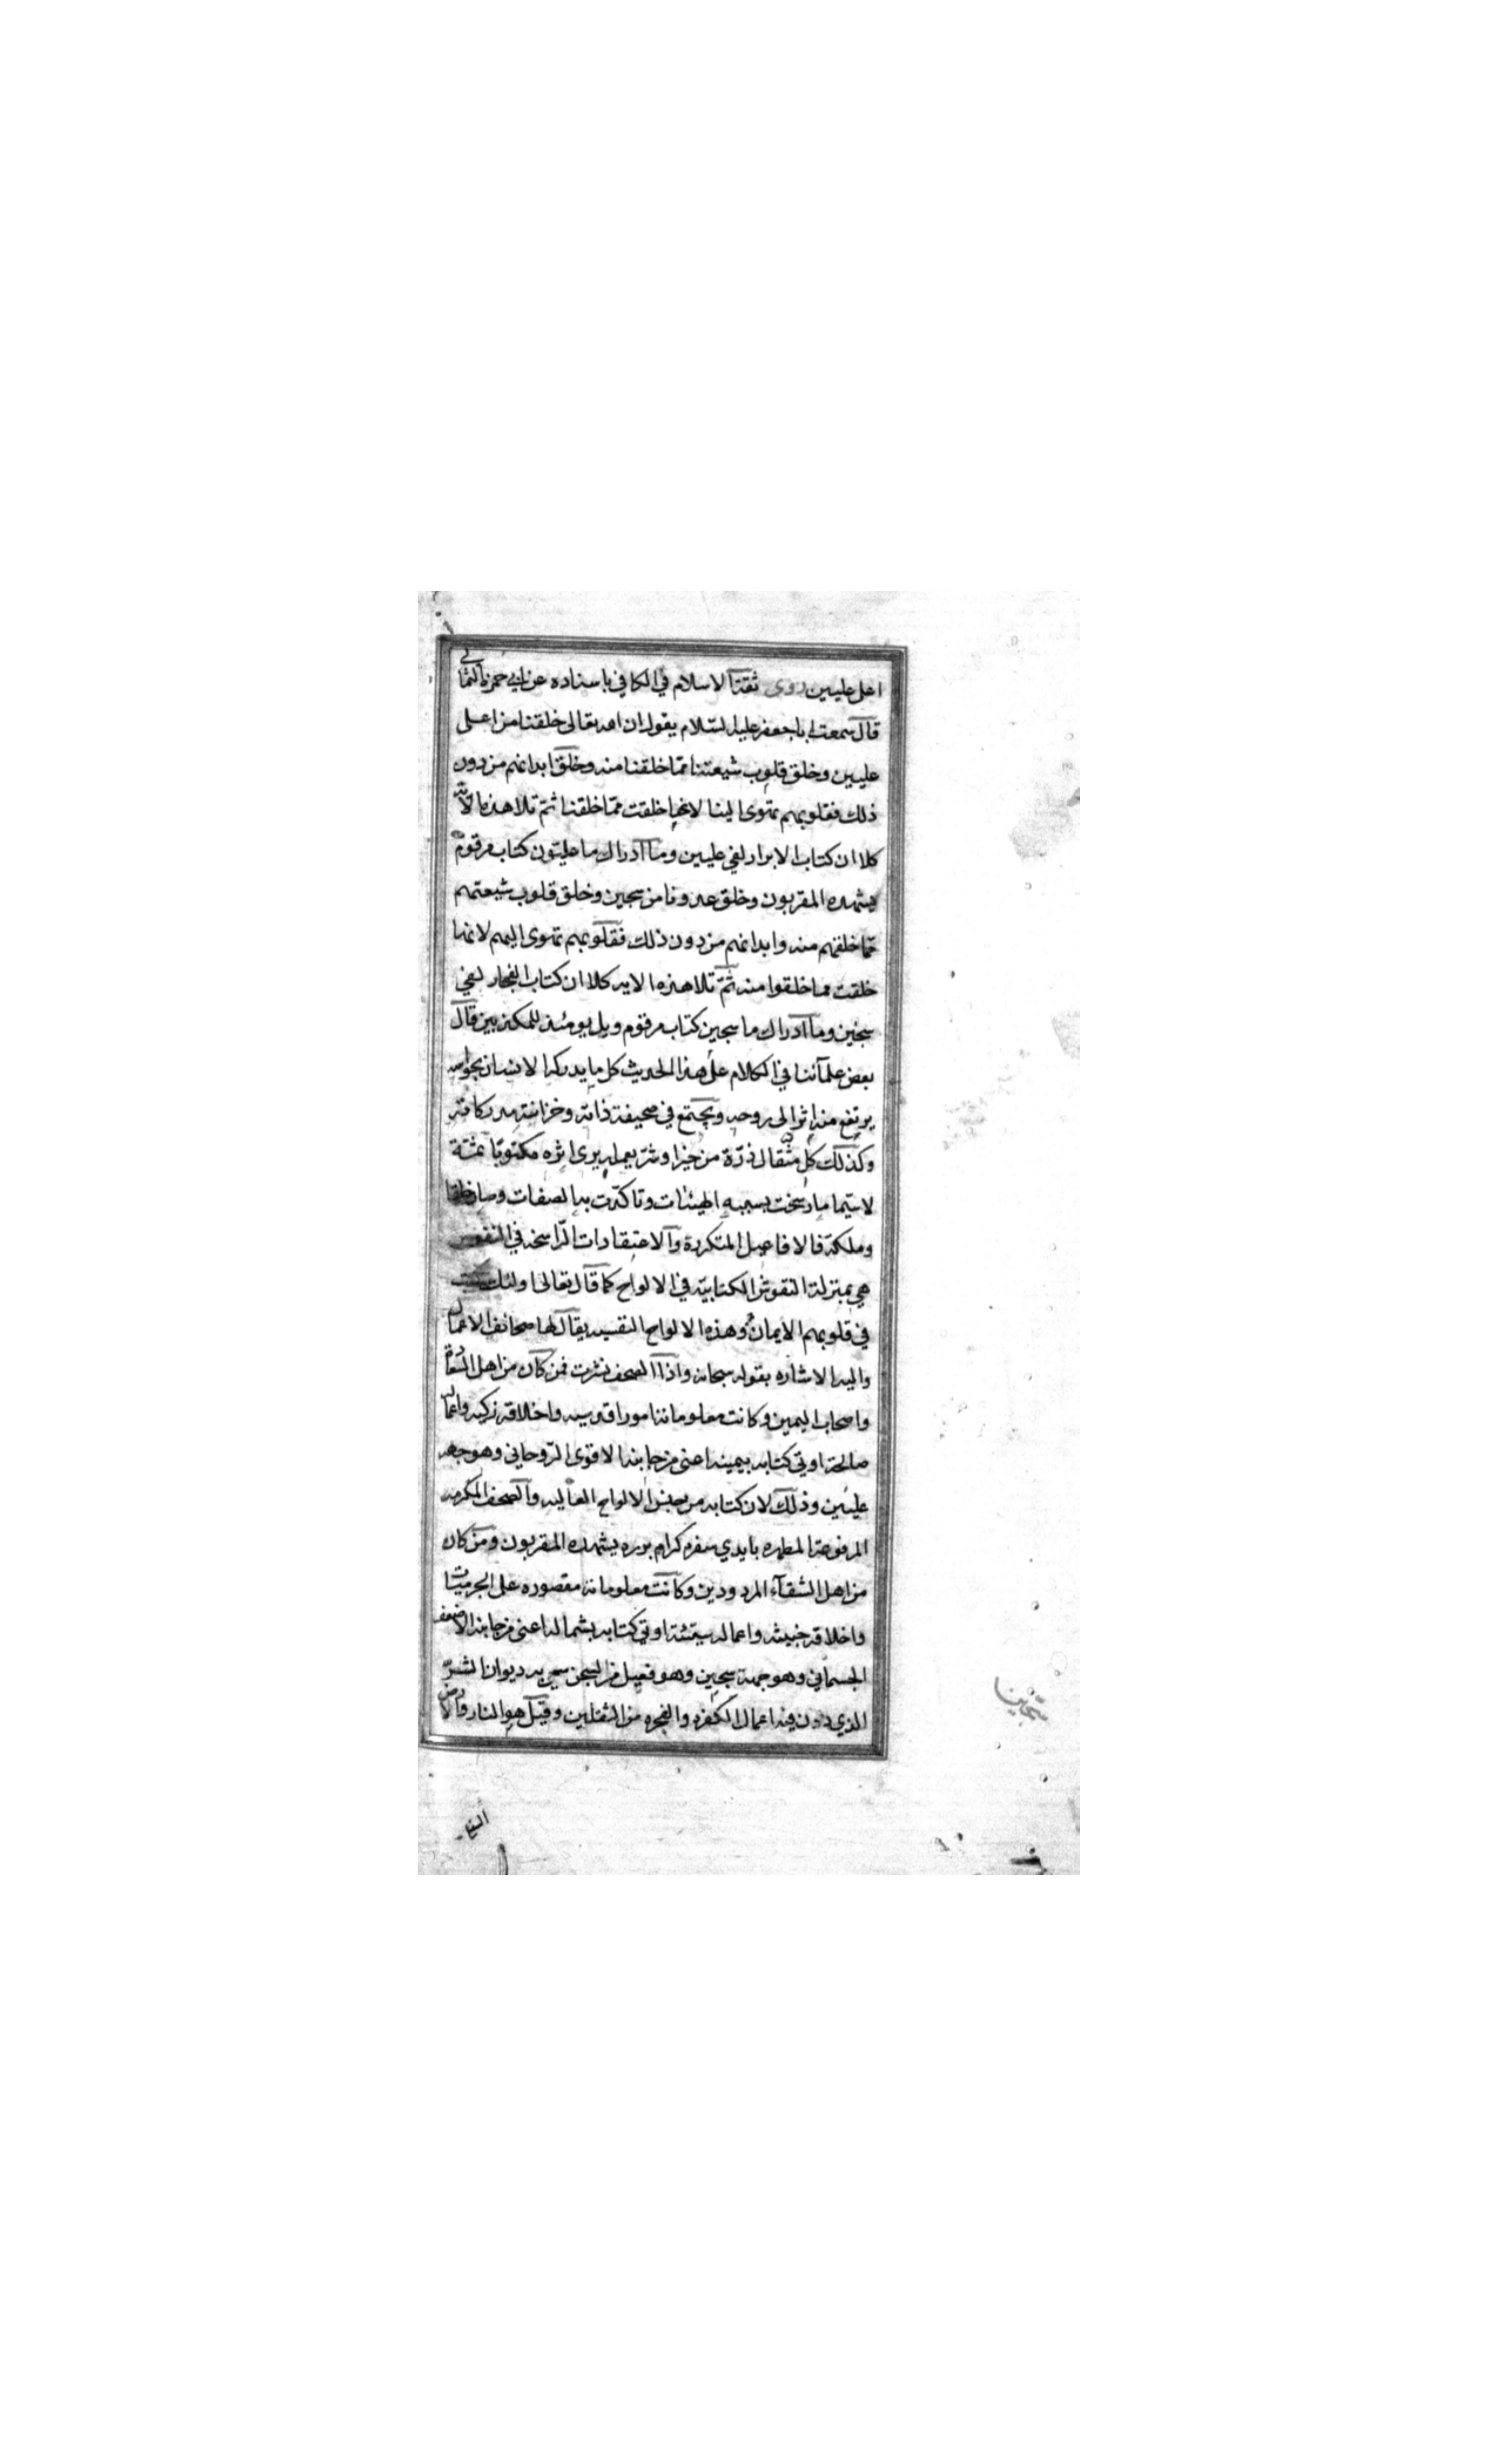 اعل عليين روى ثقة الاسلام في الكافي باسناده عن ابي حمزة الثمالي
قال سمعت ابا جعفر عليه السلام يقول ان الله تعالى خلقنا من اعلى
عليين وخلق قلوب شيعتنا ممّا خلقنا منه وخلق ابدانهم من دون
ذلك فقلوبهم تهوى الينا لانها خلقت ممّا خلقنا ثمّ تلا هذه الآية
كلا ان كتاب الابرار لفي عليين وما ادراك ما عليّون كتاب مرقوم
يشهده المقربون وخلق عدونا من سجين وخلق قلوب شيعتهم
ممّا خلقهم منه وابدانهم من دون ذلك فقلوبهم تهوى اليهم لانها
خلقت مما خلقوا منه ثمّ تلا هذه الايه كلا ان كتاب الفجار لفي
سجين وما ادراك ما سجين كتاب مرقوم ويل يومئذ للمكذبين قال
بعض علمآئنا في الكلام على هذا الحديث كل ما يدركه الانسان بحواسه
يرتفع منه اثر الى روحه ويجتمع في صحيفة ذاته وخزانة مدركاته
وكذلك كل مثقال ذرّة من خير او شرّ يعمله يرى اثره مكتوبًا ثمّة
لا سيّما ما رسخت بسببه الهيئات وتاكدّت به الصفات وصار خلقا
وملكة فالافاعيل المتكررة والاعتقادات الرّاسخه في النفوس
هي بمنزلة النقوش الكتابيّه في الالواح كما قال تعالى اولئك كتب
في قلوبهم الايمان وهذه الالواح النفسيه يقال لها صحائف الاعمال
واليه الاشاره بقوله سبحانه واذا الصحف نشرت فمن كان من اهل السعادة
واصحاب اليمين وكانت معلوماته امورا قدسيه واخلاقه زكيه واعماله
صالحة اوتي كتابه بيمينه اعني من جانبه الاقوى الرّوحاني وهو جهة
عليين وذلك لان كتابه من جنس الالواح العاليه والصحف المكرمه
المرفوعة المطهره بايدي سفره كرام برره يشهده المقربون ومن كان
من اهل الشقآء المردودين وكانت معلوماته مقصوره على الجرميات
واخلاقه خبيثه واعماله سيّئة اوتي كتابه بشماله اعني من جانبه الاضعف
الجسماني وهو جهة سجين وهو فعيل من السجن سمي به ديوان الشرّ
الذي دون فيه اعمال الكفره والفجره من الثقلين وقيل هو النار والارض
سجين